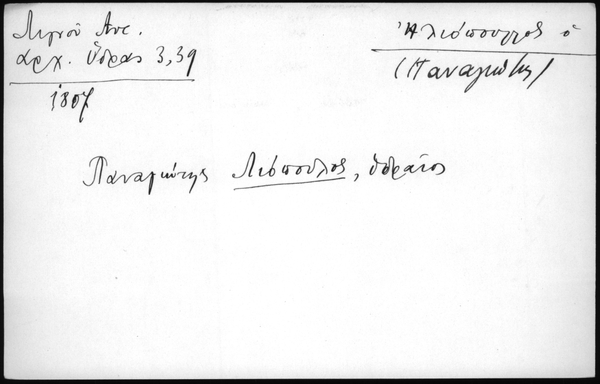 Λιγνοῦ Αντ.
αρχ. Ὕδρας 3,39
1807
Ἡλιόπουλλος ὁ
(Παναγιώτης)
Παναγιώτης Λιόπουλος, ὑδραῖος